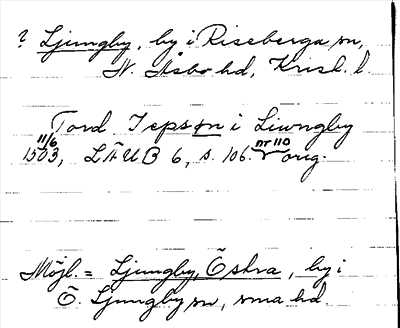 ? Ljungby, by i Riseberga sn,
N. Åsbo hd, Krist. l.
Tord Jepson i Liwngby
11/6 nr 110
1503, LÄUB 6, s. 106. orig.
Möjl. = Ljungby, Östra, by i
Ö. Ljungby sn, sma hd.